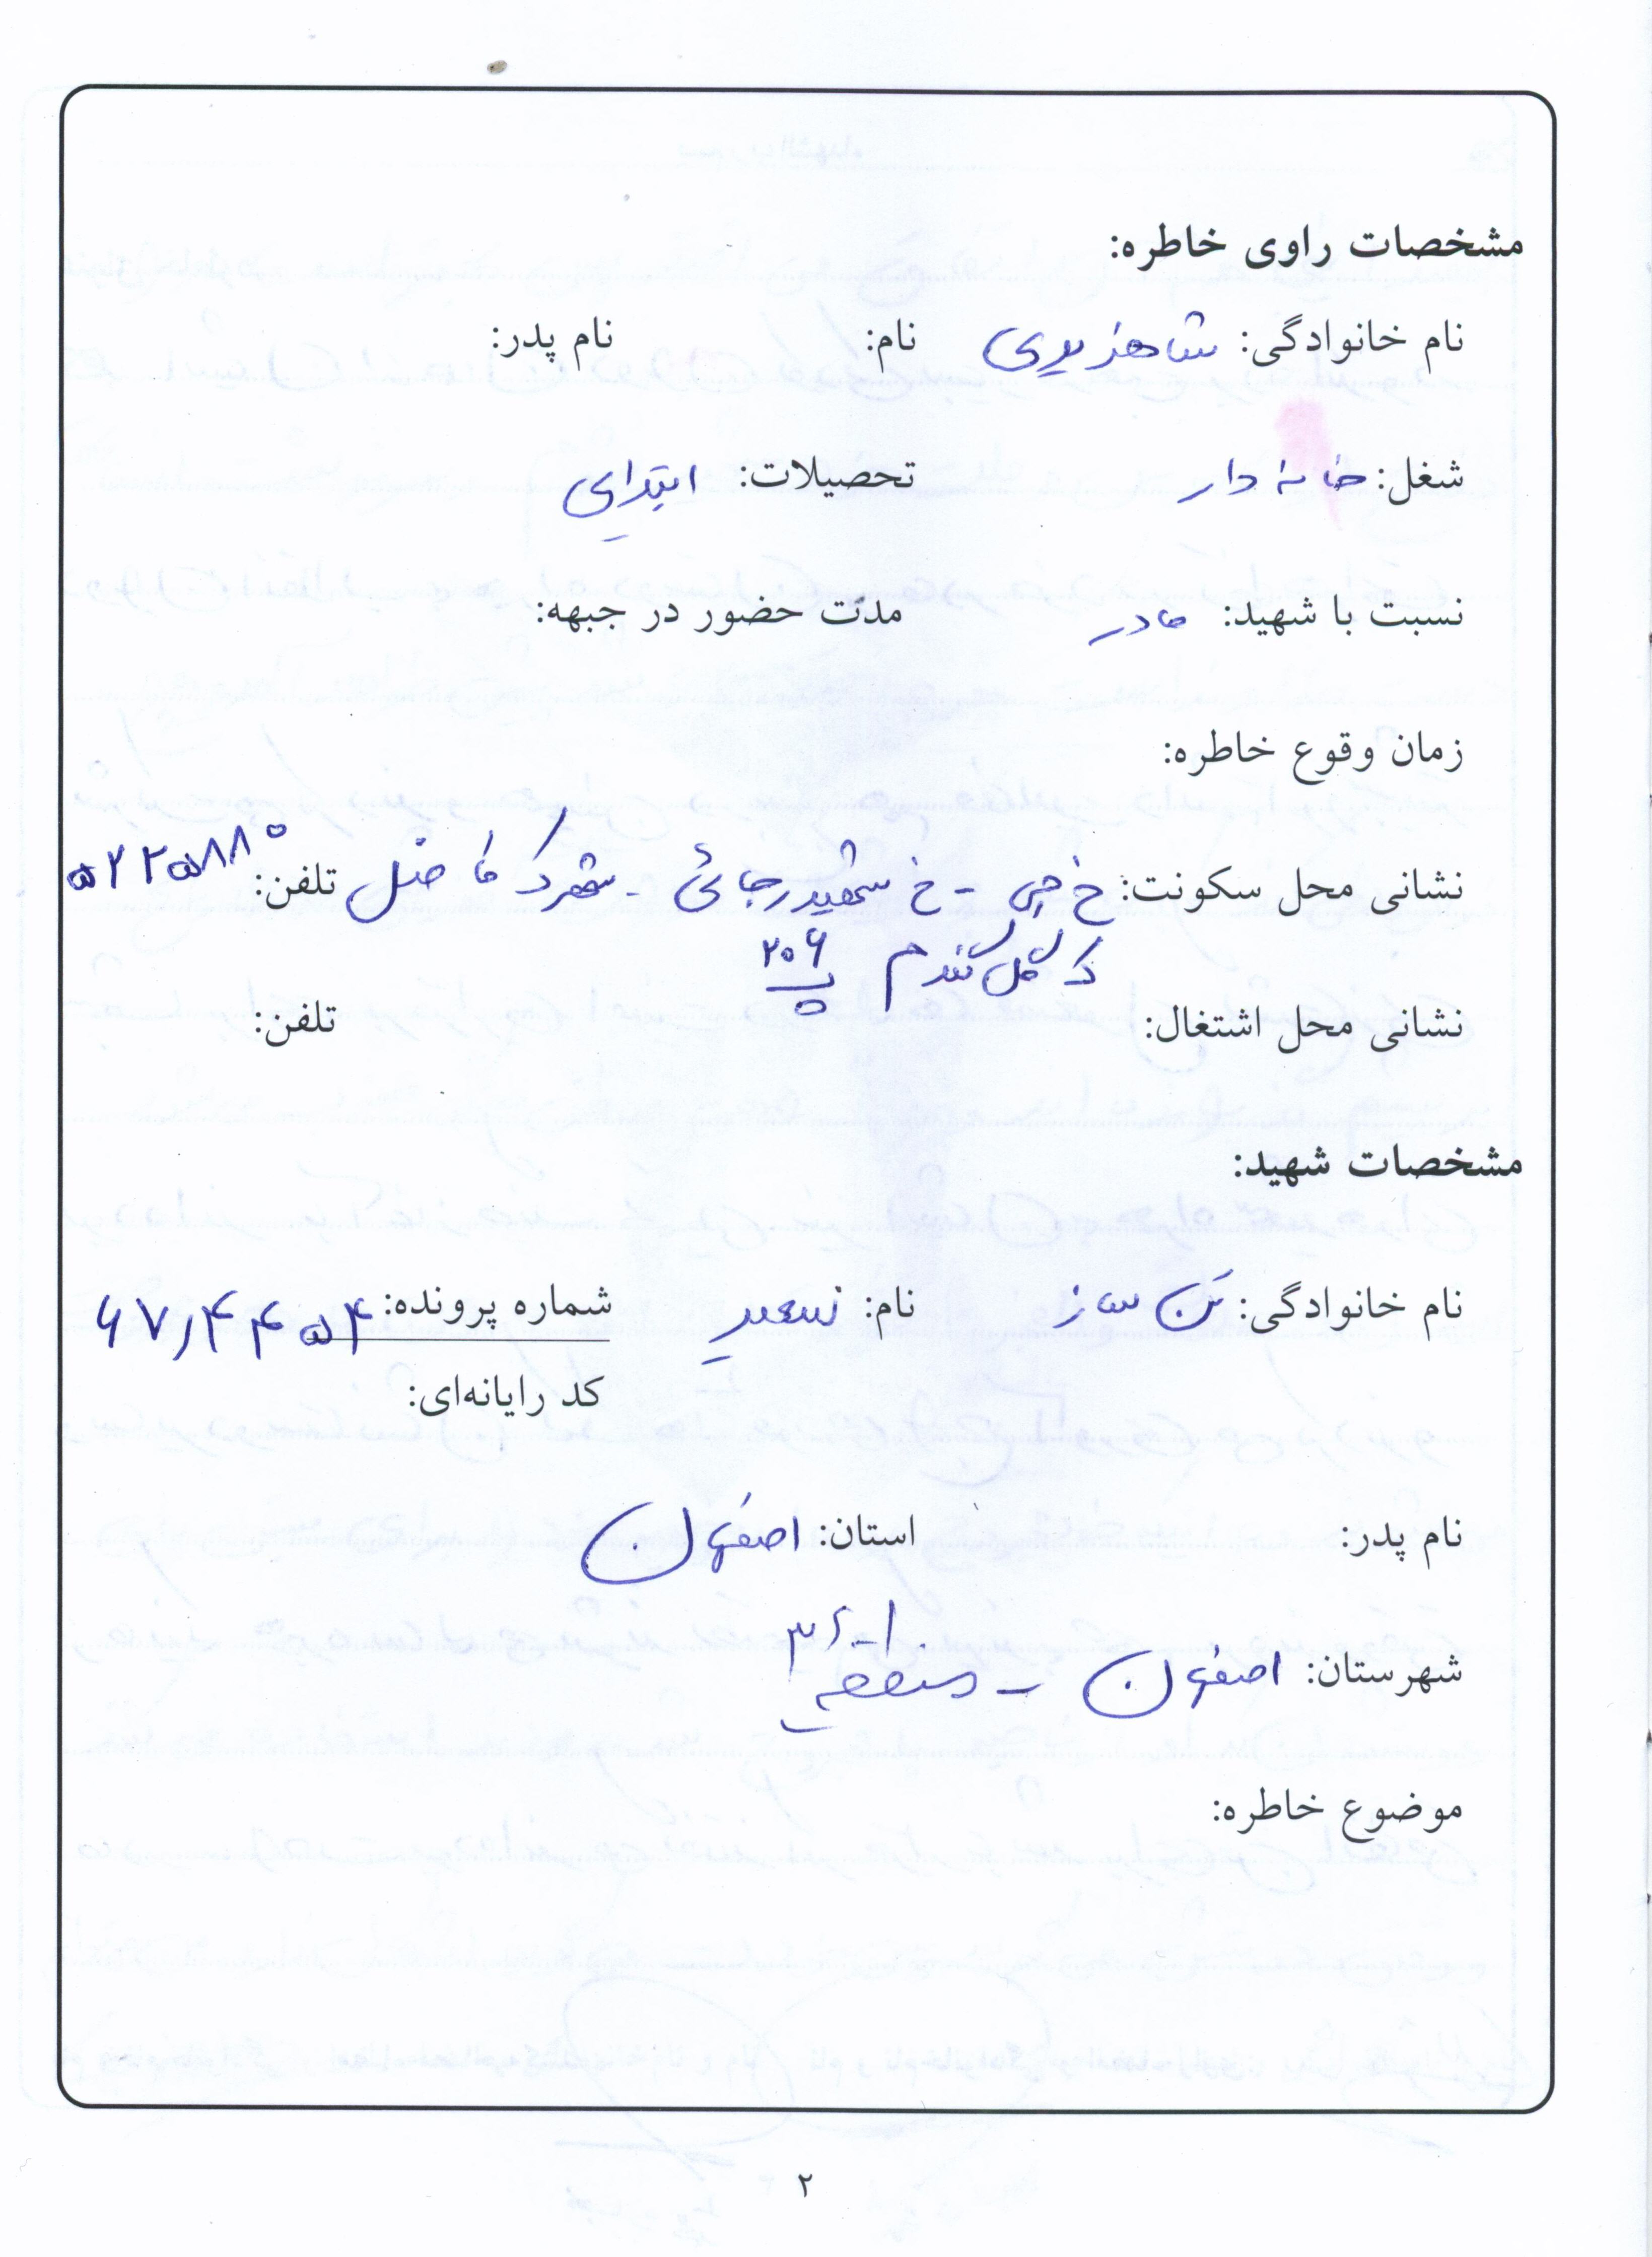 مشخصات راوی خاطره:
نام خانوادگی: شاهزیدی نام: نام پدر:
شغل: خانه دار تحصیلات: ابتدایی
نسبت با شهید: مادر مدّت حضور در جبهه:
زمان وقوع خاطره:
نشانی محل سکونت: خ جی - خ شهید رجائی - شهرک فاضل تلفن: ۵۲۲۵۸۸۰
ک گل گندم پ ۲۰۶
نشانی محل اشتغال: تلفن:
مشخصات شهید:
نام خانوادگی: تن ساز نام: سعید شماره پرونده: ۶۷٫۴۴۵۴
کد رایانه‌ای:
نام پدر: استان: اصفهان
شهرستان: اصفهان - منطقه ۳
موضوع خاطره:
۲